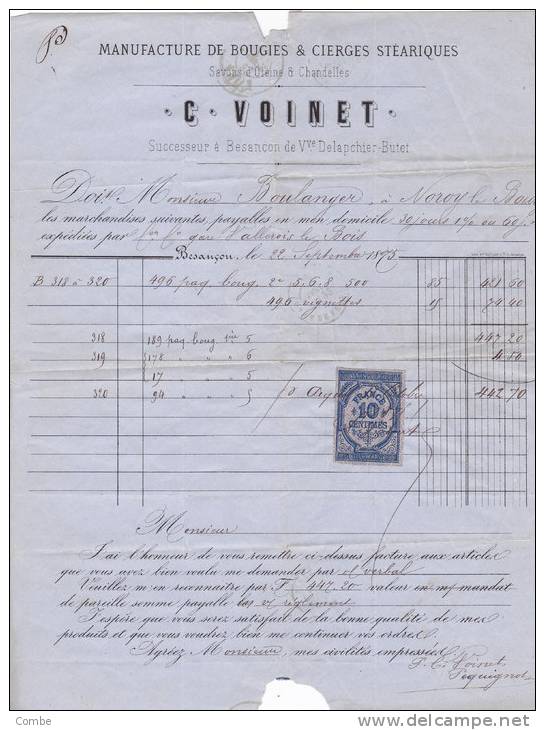 MANUFACTURE DE BOUGIES & CIERGES STÉARIQUES
Savons d'Oléine & Chandelles
C. VOINET
Successeur à Besançon de Vve Delapchier-Butet
Doit Monsieur Boulanger, à Noroy le Bourg
les marchandises suivantes, payables en mon domicile 30 jours 1% ou 60 j.
expédiées par gare Vallerois le Bois
Besançon, le 22 Septembre 1875
B 318 à 320 496 paq boug. 2e 5.6.8 500 85 421 60
496 vignettes 15 74 40
447 20
318 189 paq boug 5 4.50
319 178 " " " 6
17 " " " 5
320 94 " " 442 70
FRANCE
10
CENTIMES
Monsieur
J'ai l'honneur de vous remettre ci-dessus facture aux articles
que vous avez bien voulu me demander par et verbal
Veuillez m'en reconnaître par F 447.20 valeur en m/ mandat
de pareille somme payable et règlement
J'espère que vous serez satisfait de la bonne qualité de mes
produits et que vous voudrez bien me continuer vos ordres.
Agréez Monsieur, mes civilités empressées.
C. Voinet
Pequignot
Combe
www.delcampe.net